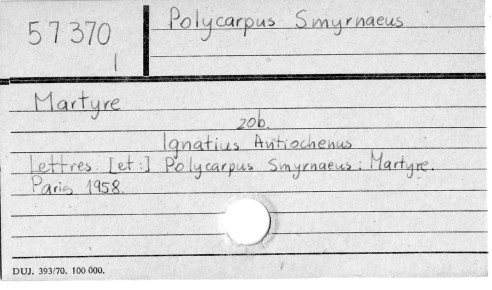 57370
1
Polycarpus Smyrnaeus
Martyre
zob.
Ignatius Antiochenus
Lettres [et:] Polycarpus Smyrnaeus: Martyre.
Paris 1958.
DUJ. 393/70. 100 000.